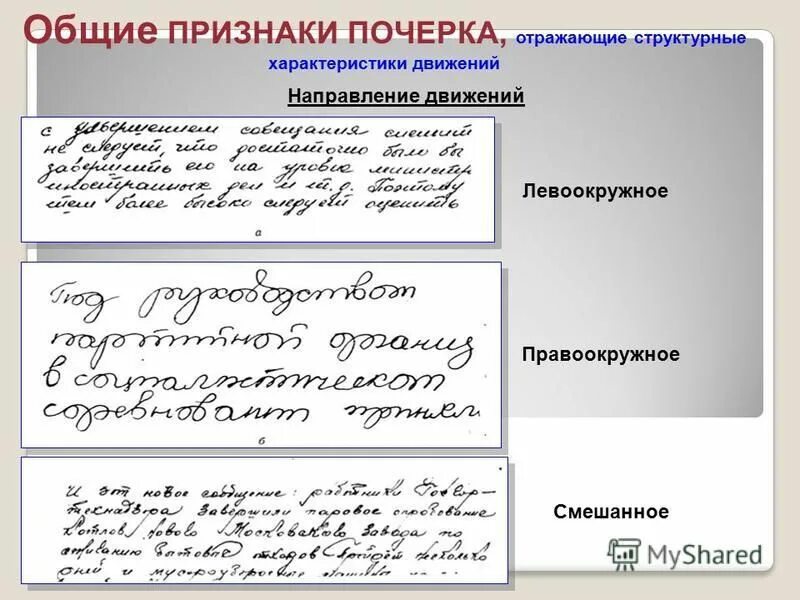 Общие ПРИЗНАКИ ПОЧЕРКА, отражающие структурные
характеристики движений
Направление движений
с завершением совещания спешит
не следует, что достаточно было бы
завершить его на уровне министр
иностранных дел и т.д. Поэтому
тем более высоко следует оценить
а
Левоокружное
Под руководством
партийной организ
в социалистическом
соревновании приняли
б
Правоокружное
И эт новое сообщение: работники
технадзора завершили паровое опробование
котлов нового Московского завода по
отходов несколько
дней и
Смешанное
MyShared